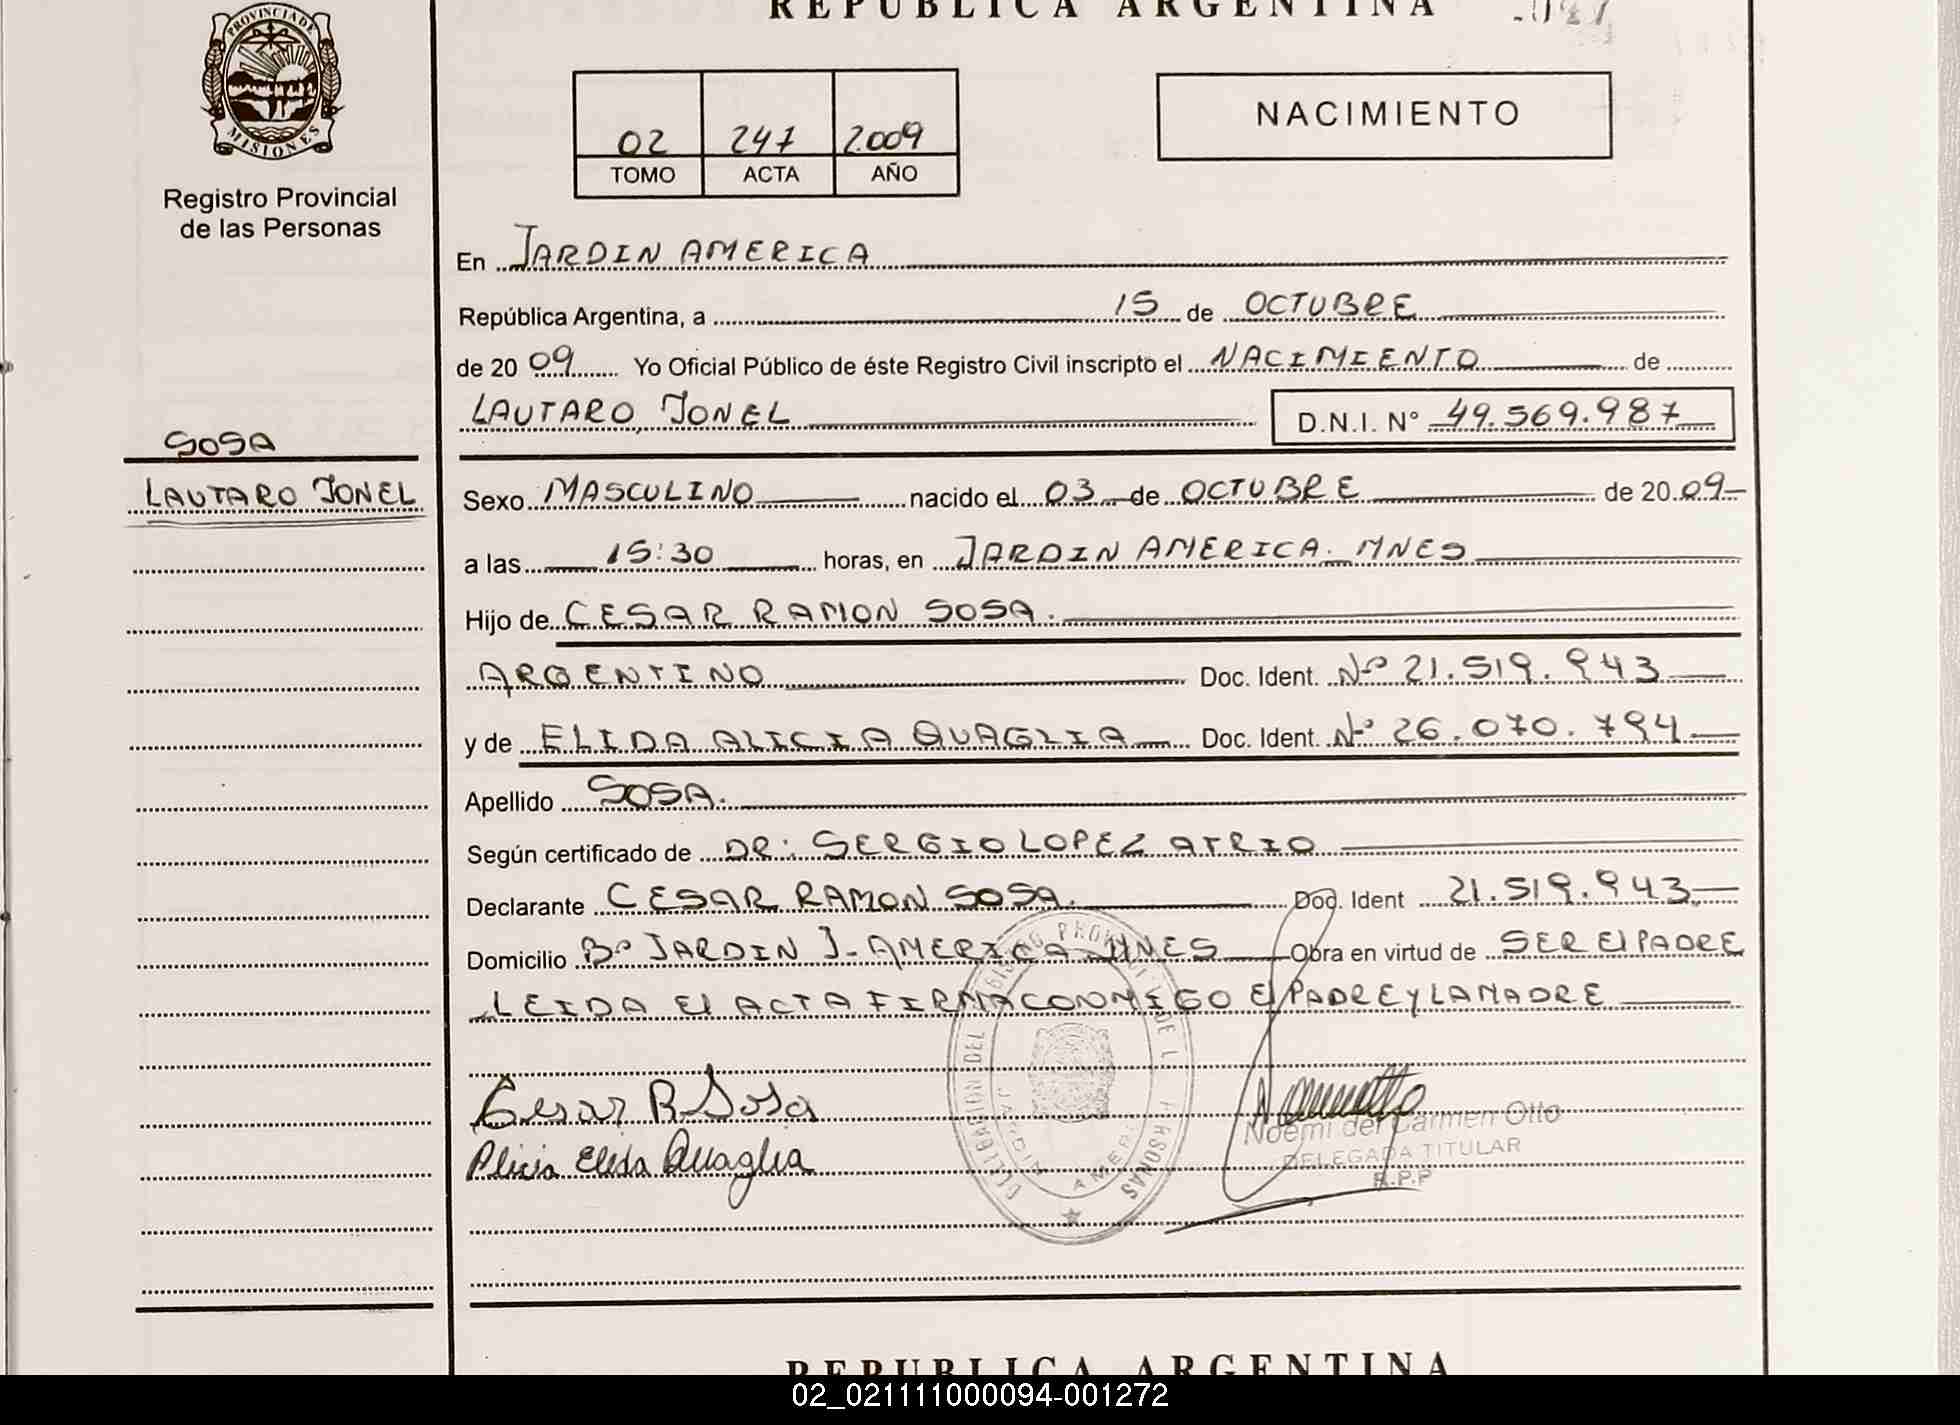 REPUBLICA ARGENTINA
PROVINCIA DE
MISIONES
Registro Provincial
de las Personas
02 247 2009
TOMO ACTA AÑO
NACIMIENTO
En JARDIN AMERICA
República Argentina, a 15 de OCTUBRE
de 20 09 Yo Oficial Público de éste Registro Civil inscripto el NACIMIENTO de
LAUTARO, JONEL D.N.I. N° 49.569.987
SOSA
LAUTARO JONEL
Sexo MASCULINO nacido el 03 de OCTUBRE de 20 09
a las 15:30 horas, en JARDIN AMERICA. MNES
Hijo de CESAR RAMON SOSA.
ARGENTINO Doc. Ident. Nº 21.519.943
y de ELIDA ALICIA QUAGLIA Doc. Ident. Nº 26.070.794
Apellido SOSA.
Según certificado de DR: SERGIO LOPEZ ATRIO
Declarante CESAR RAMON SOSA. Doc. Ident 21.519.943
Domicilio Bº JARDIN J-AMERICA-MNES Obra en virtud de SER El PADRE
LEIDA El ACTA FIRMA CONMIGO El PADRE y LA MADRE
Cesar R Sosa
Alicia Elida Quaglia
Noemí del Carmen Otto
DELEGADA TITULAR
R.P.P
REPUBLICA ARGENTINA
02_021111000094-001272